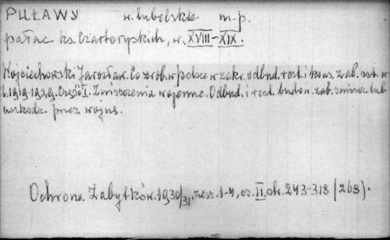 PUŁAWY w. lubelskie m.p.
pałac ks. Czartoryskich, w. XVIII-XIX.
Wojciechowski Jarosław. Co zrob. w polsce w zakr. odbud. rest. i kons. zab. szt. w
l. 1919-1929. Część I. Zniszczenia wojenne. Odbud. i rest. budow. zab. zniszcz. lub
uszkodz. przez wojnę.
Ochrona Zabytków. 1930/31. zesz. 1-4, cz. II, str. 243-318 (268).